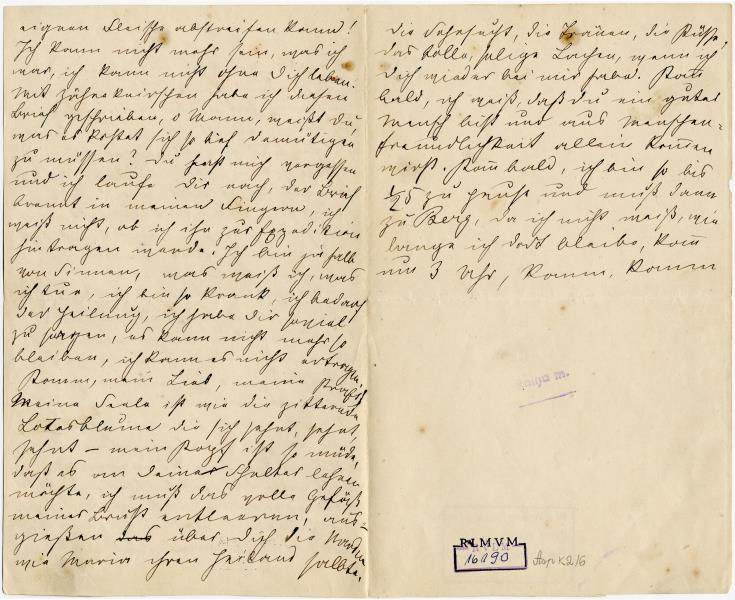 eignen Fleische abstreifen kann!
Ich kann nicht mehr sein, was ich
war, ich kann nicht ohne Dich leben.
Mit Zähneknirschen habe ich diesen
Brief geschrieben, o Mann, weißt Du,
was es kostet sich so tief demütigen
zu müssen? Du hast mich vergessen
und ich laufe Dir nach, der Brief
brennt in meinen Fingern, ich
weiß nicht, ob ich ihn zur Expedition
hintragen werde. Ich bin ja halb
von Sinnen, was weiß ich, was
ich tue, ich bin so krank, ich bedarf
der Heilung, ich habe Dir soviel
zu sagen, es kann nicht mehr so
bleiben, ich kann es nicht ertragen,
Komm, mein Lieb, meine Kraft!
Meine Seele ist wie die zitternde
Lotosblume die sich sehnt, sehnt,
sehnt – mein Kopf ist so müde,
daß es an Deiner Schulter lehnen
möchte, ich muß das volle Gefäß
meiner Brust entleeren, aus-
gießen das über Dich die Narden
wie Maria ihren Heiland salbte.
die Sehnsucht, die Tränen, die Küsse,
das tolle, selige Lachen, wenn ich
Dich wieder bei mir habe. Komm
bald, ich weiß, daß Du ein guter
Mensch bist und aus Menschen-
freundlichkeit allein kommen
wirst. Komm bald, ich bin so bis
1/2 5 zu Hause und muß dann
zu Berg, da ich nicht weiß, wie
lange ich dort bleibe, komm
um 3 Uhr, komm, komm
RLMVM
16190